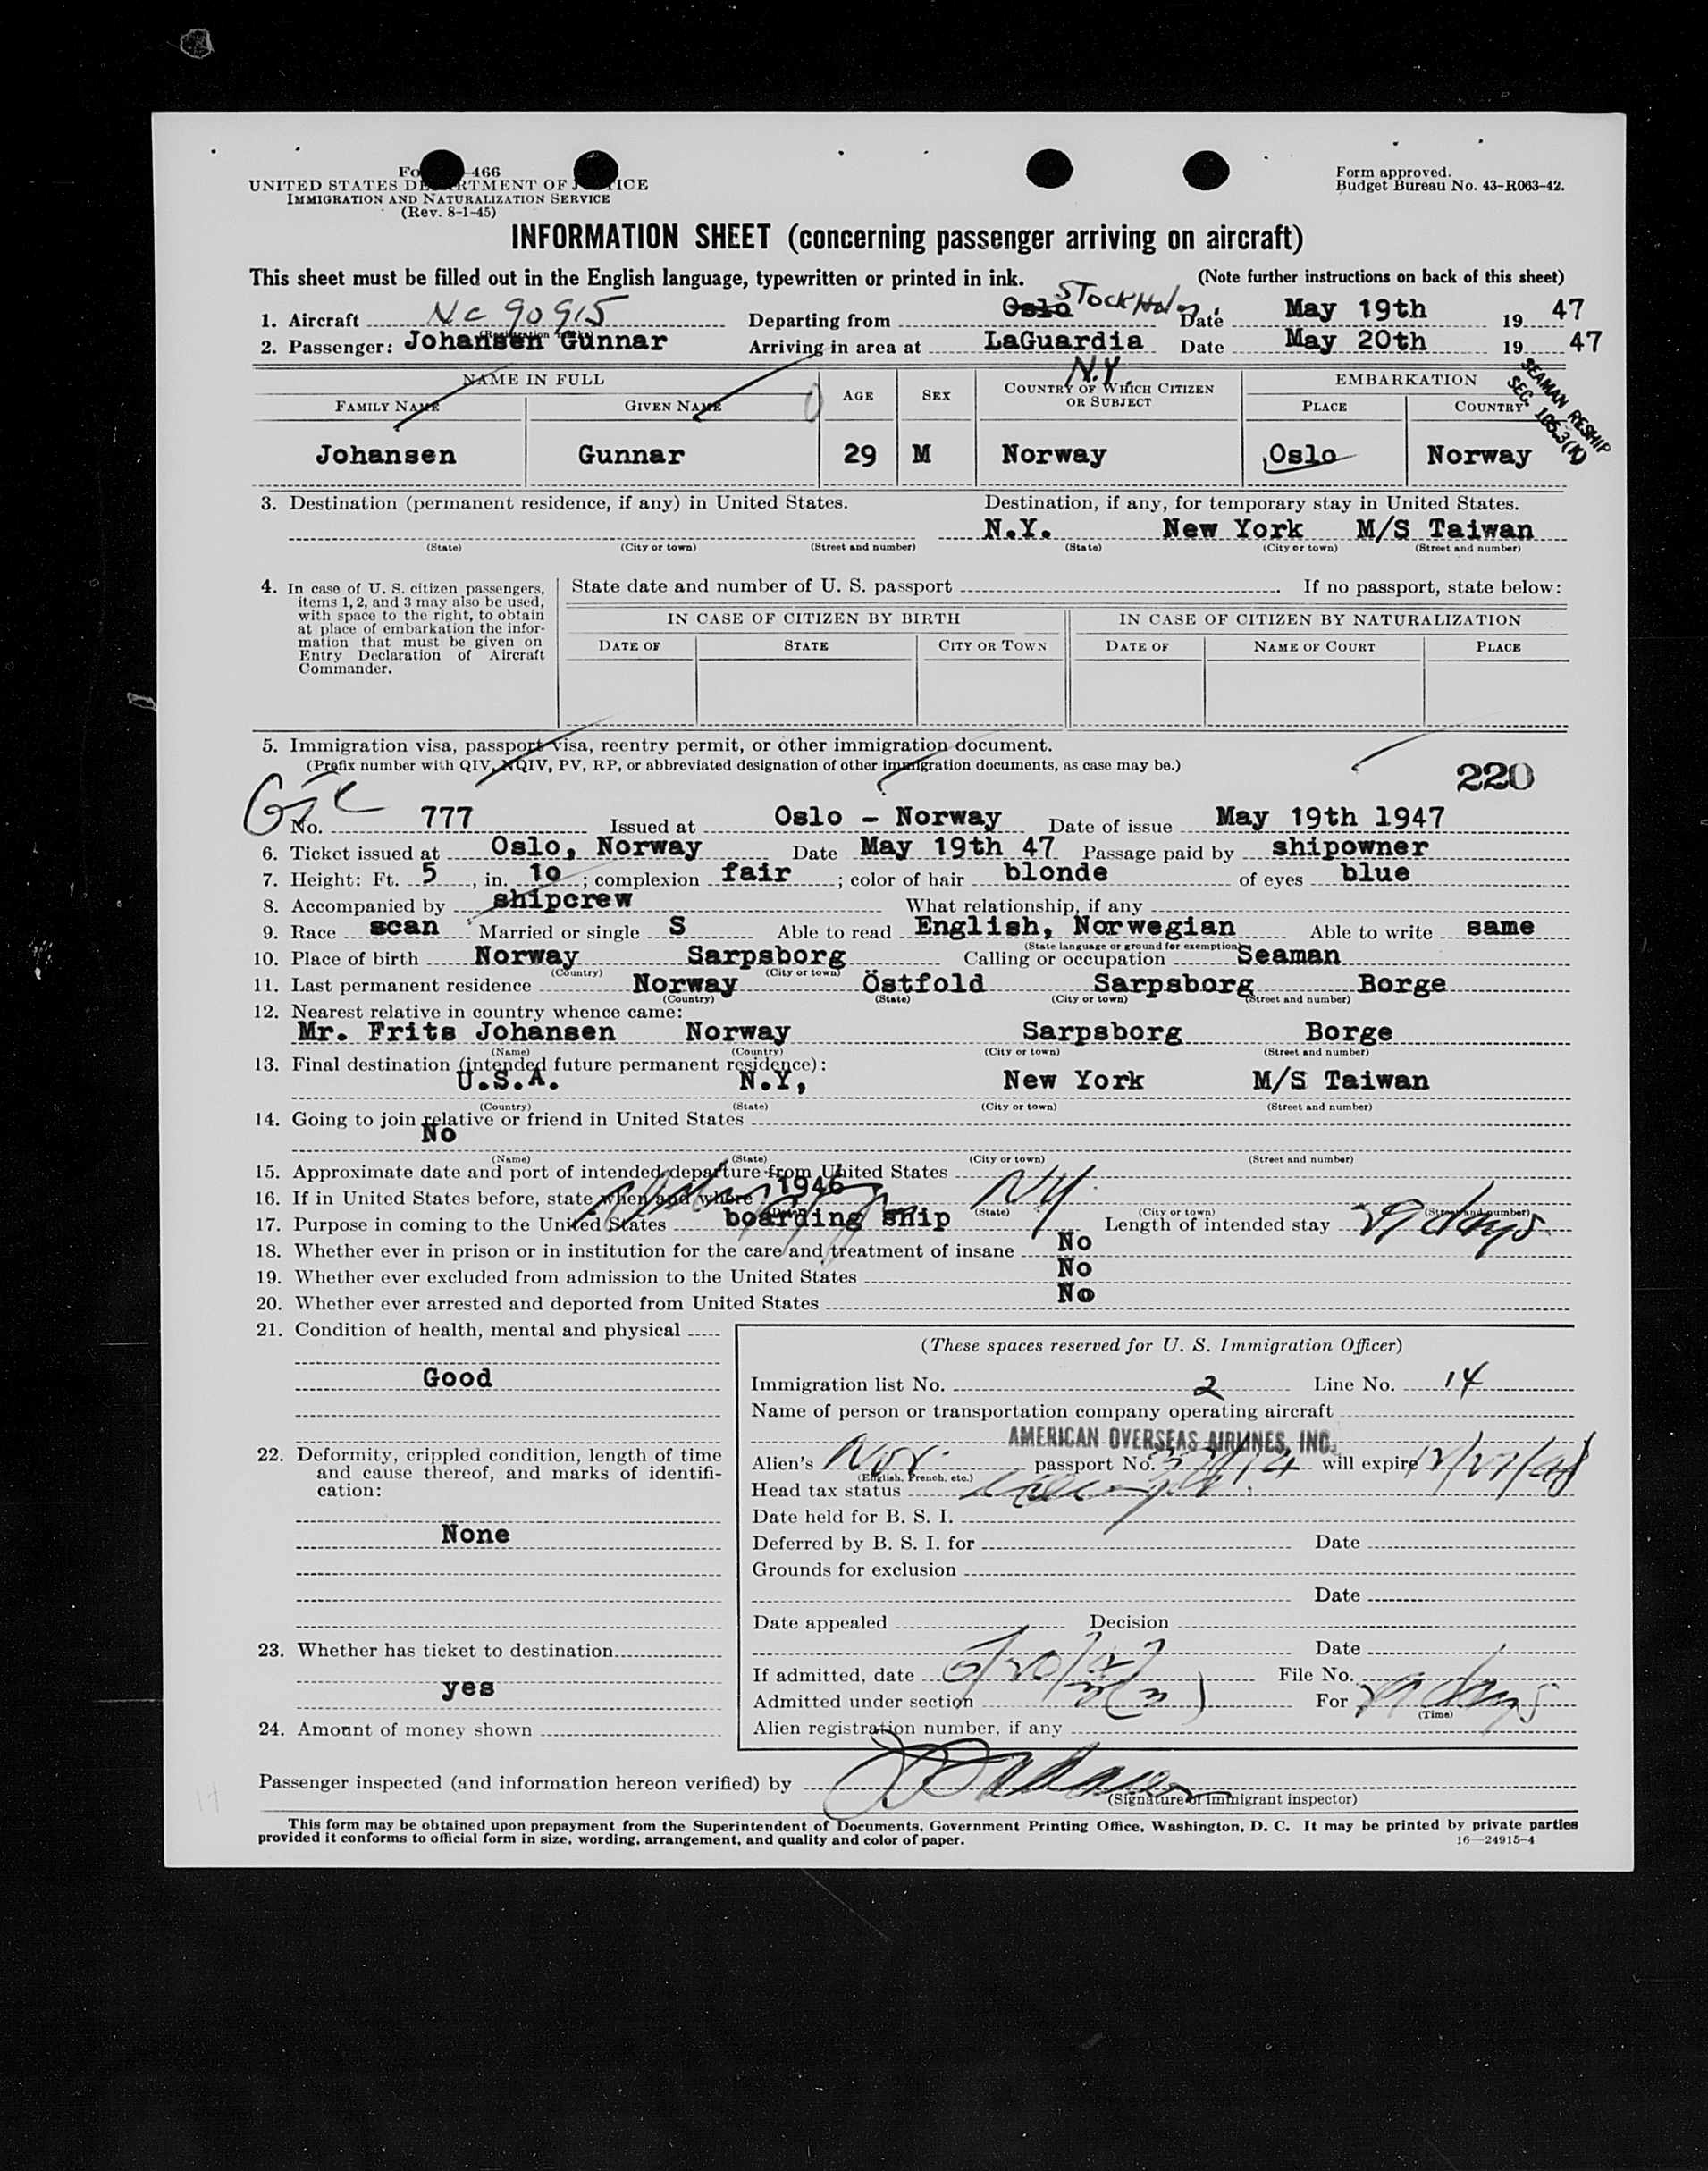 Fo -466
UNITED STATES DEPARTMENT OF JUSTICE
IMMIGRATION AND NATURALIZATION SERVICE
(Rev. 8-1-45)
Form approved.
Budget Bureau No. 43-R063-42.
INFORMATION SHEET (concerning passenger arriving on aircraft)
This sheet must be filled out in the English language, typewritten or printed in ink. (Note further instructions on back of this sheet)
1. Aircraft NC 90915 Departing from Oslo STOCKHOLM Date May 19th 19 47
(Registration marks)
2. Passenger: Johansen Gunnar Arriving in area at LaGuardia Date May 20th 19 47
N.Y.
SEAMAN RESHIP
SEC. 1063(K)
NAME IN FULL AGE SEX COUNTRY OF WHICH CITIZEN OR SUBJECT EMBARKATION
FAMILY NAME GIVEN NAME PLACE COUNTRY
Johansen Gunnar 29 M Norway Oslo Norway
3. Destination (permanent residence, if any) in United States. Destination, if any, for temporary stay in United States.
N.Y. New York M/S Taiwan
(State) (City or town) (Street and number) (State) (City or town) (Street and number)
4. In case of U. S. citizen passengers,
items 1, 2, and 3 may also be used,
with space to the right, to obtain
at place of embarkation the infor-
mation that must be given on
Entry Declaration of Aircraft
Commander.
State date and number of U. S. passport If no passport, state below:
IN CASE OF CITIZEN BY BIRTH IN CASE OF CITIZEN BY NATURALIZATION
DATE OF STATE CITY OR TOWN DATE OF NAME OF COURT PLACE
5. Immigration visa, passport visa, reentry permit, or other immigration document.
(Prefix number with QIV, NQIV, PV, RP, or abbreviated designation of other immigration documents, as case may be.)
220
No. 777 Issued at Oslo - Norway Date of issue May 19th 1947
6. Ticket issued at Oslo, Norway Date May 19th 47 Passage paid by shipowner
7. Height: Ft. 5, in. 10; complexion fair; color of hair blonde of eyes blue
8. Accompanied by shipcrew What relationship, if any
9. Race scan Married or single S Able to read English, Norwegian Able to write same
(State language or ground for exemption)
10. Place of birth Norway Sarpsborg Calling or occupation Seaman
(Country) (City or town)
11. Last permanent residence Norway Östfold Sarpsborg Borge
(Country) (State) (City or town) (Street and number)
12. Nearest relative in country whence came:
Mr. Frits Johansen Norway Sarpsborg Borge
(Name) (Country) (City or town) (Street and number)
13. Final destination (intended future permanent residence):
U.S.A. N.Y, New York M/S Taiwan
(Country) (State) (City or town) (Street and number)
14. Going to join relative or friend in United States
No
(Name) (State) (City or town) (Street and number)
15. Approximate date and port of intended departure from United States
16. If in United States before, state when and where 1946 NY
(Date) (State) (City or town) (Street and number)
17. Purpose in coming to the United States boarding ship Length of intended stay 29 days
18. Whether ever in prison or in institution for the care and treatment of insane No
19. Whether ever excluded from admission to the United States No
20. Whether ever arrested and deported from United States No
21. Condition of health, mental and physical
Good
22. Deformity, crippled condition, length of time
and cause thereof, and marks of identifi-
cation:
None
23. Whether has ticket to destination
yes
24. Amount of money shown
(These spaces reserved for U. S. Immigration Officer)
Immigration list No. 2 Line No. 14
Name of person or transportation company operating aircraft
AMERICAN OVERSEAS AIRLINES, INC.
Alien's Nor. passport No. will expire 12/27/48
(English, French, etc.)
Head tax status
Date held for B. S. I.
Deferred by B. S. I. for Date
Grounds for exclusion
Date
Date appealed Decision
Date
If admitted, date 5/20/47 File No.
Admitted under section 3(3) For 29 days
(Time)
Alien registration number, if any
Passenger inspected (and information hereon verified) by
(Signature of immigrant inspector)
This form may be obtained upon prepayment from the Superintendent of Documents, Government Printing Office, Washington, D. C. It may be printed by private parties
provided it conforms to official form in size, wording, arrangement, and quality and color of paper. 16—24915-4